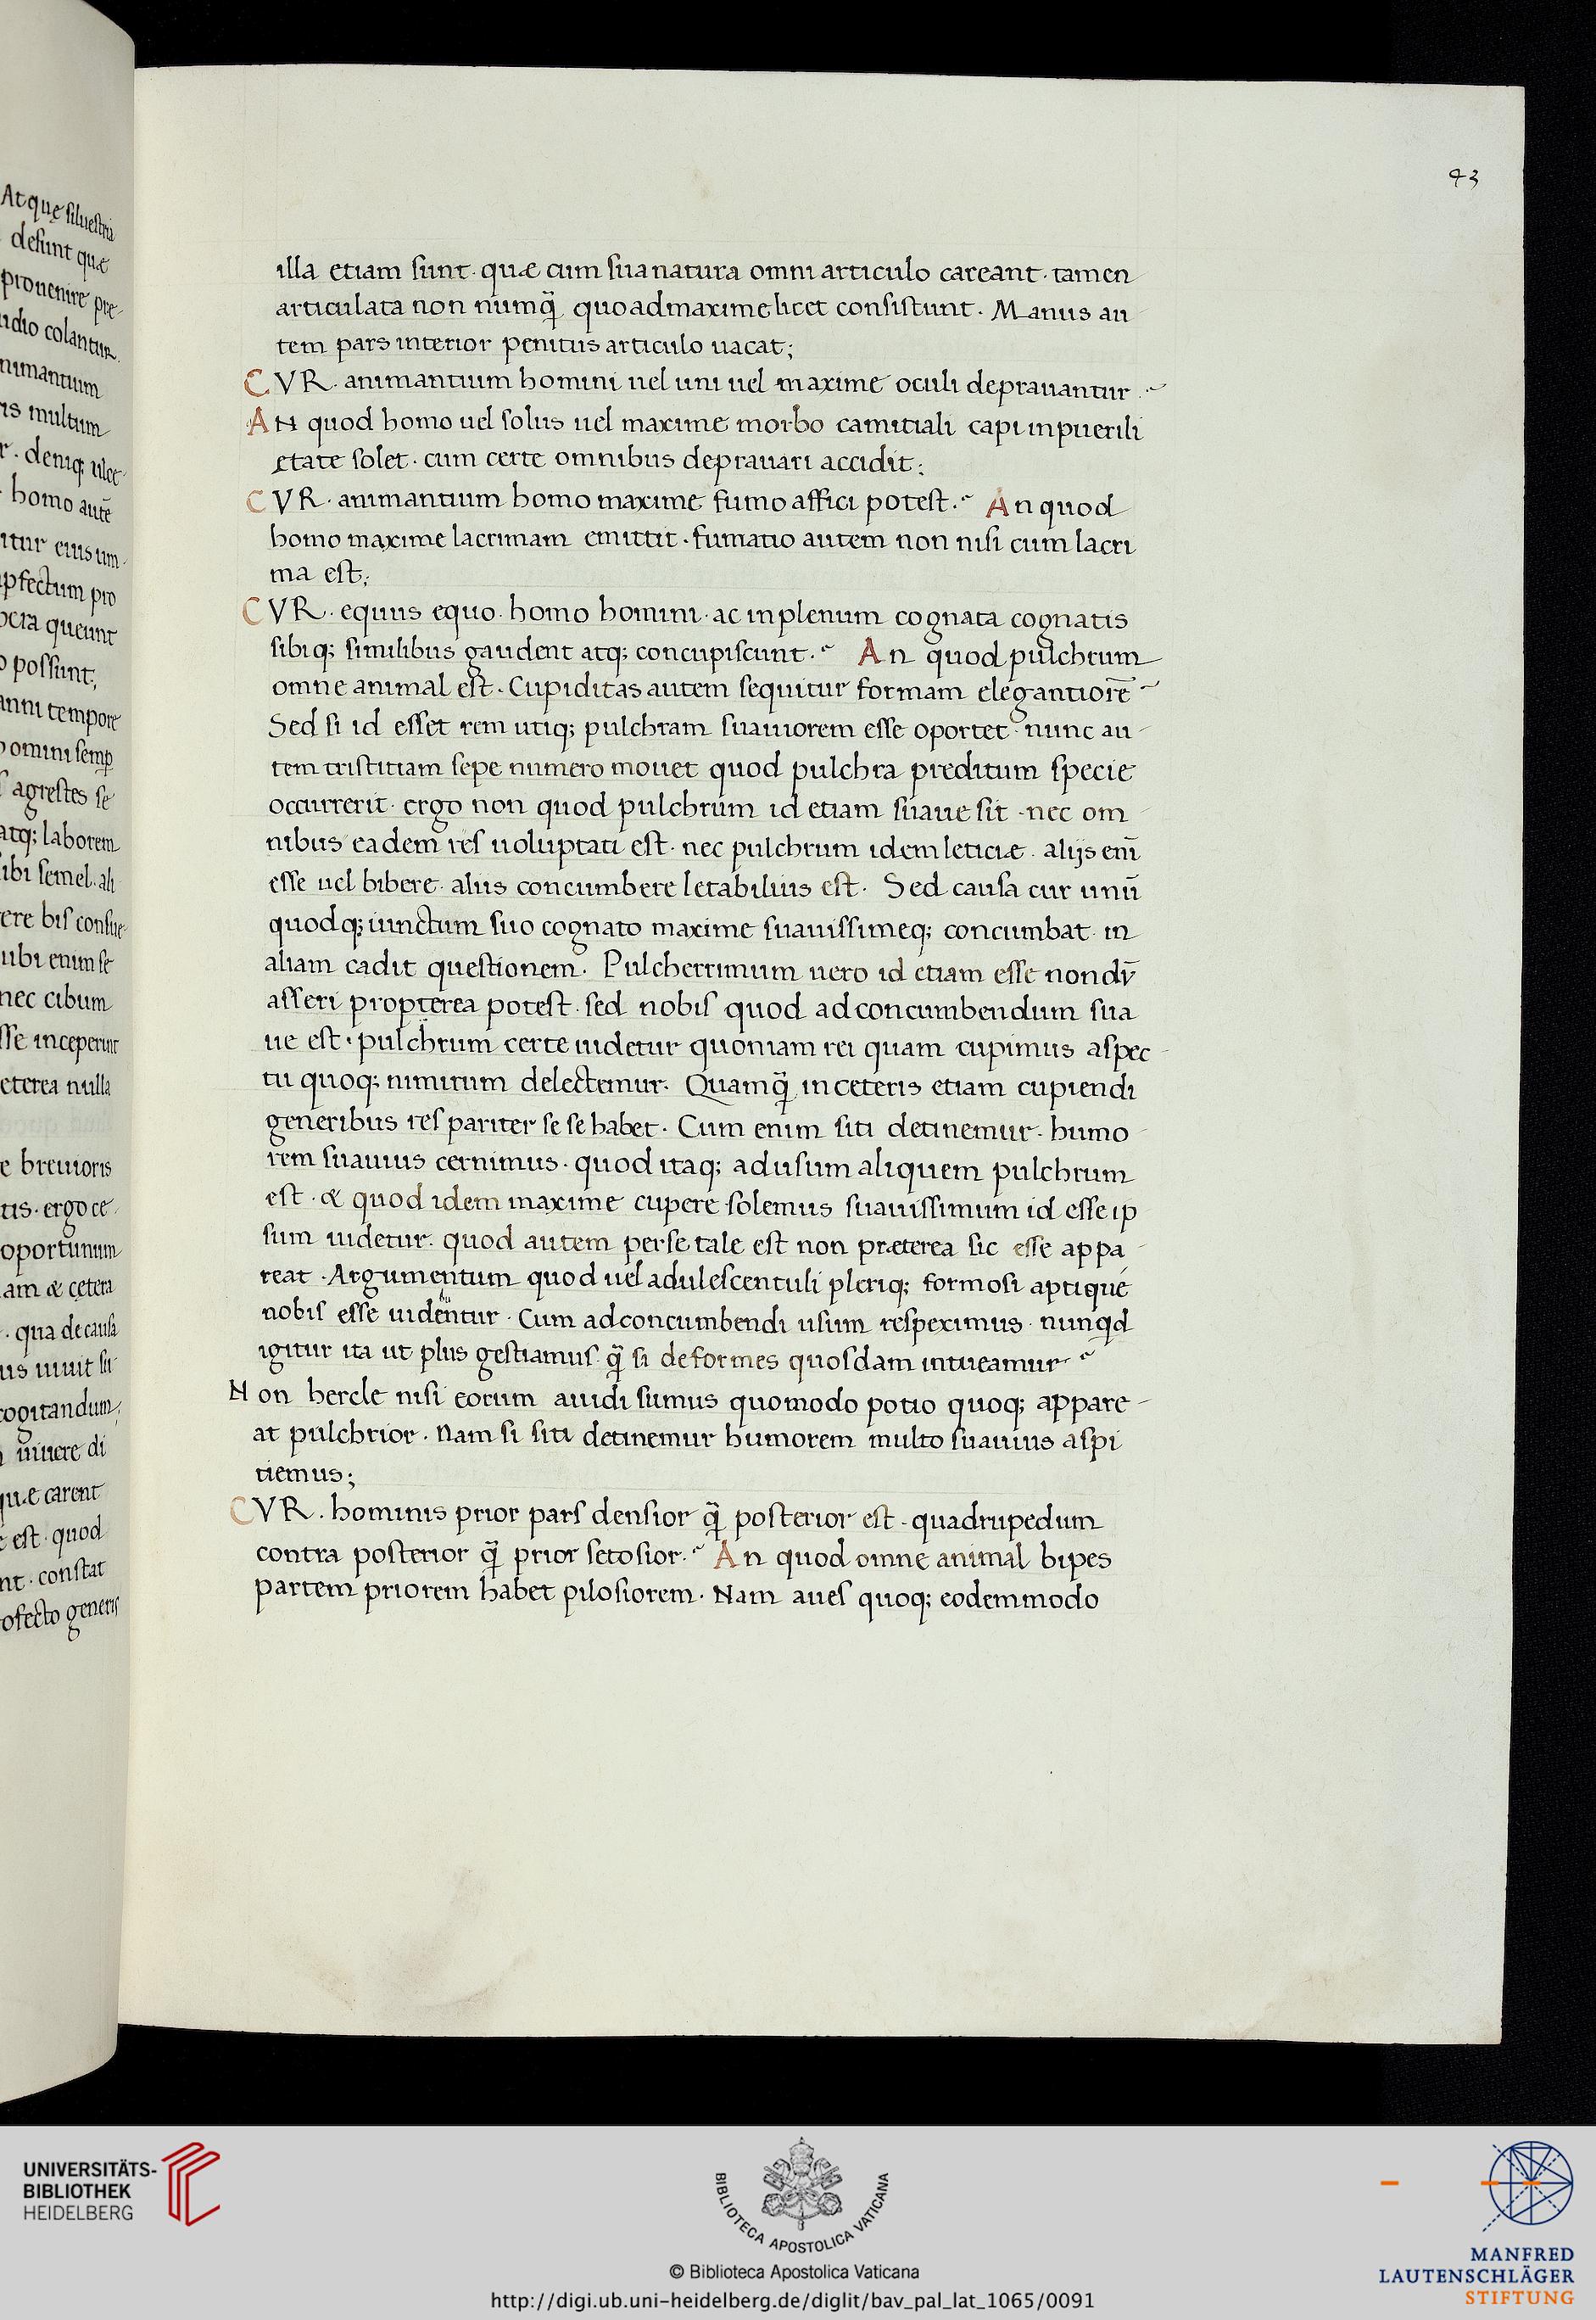 Atque siluestria
desunt quæ
prouenire pre-
udio colantur.
nimantium
is multum
r . deniq; ulce
homo autē
itur eius im-
pfectum pro
pera queunt
o possunt;
anni tempore
homini semp
agrestes se
atq; laborem
ibi semel . ali
ere bis consue-
ubi enim se
nec cibum
sse inceperint
eterea nulla
e breuioris
tis . ergo ce-
oportunum
am & cetera
. qua de causa
us uiuit su-
cogitandum;
uiuere di
quæ carent
e est . quod
nt . constat
ofecto generis
93
illa etiam sunt . quæ cum sua natura omni articulo careant . tamen
articulata non numq̄ quoad maxime licet consistunt . Manus au
tem pars interior penitus articulo uacat;
CVR . animantium homini uel uni uel maxime oculi deprauantur .
AN quod homo uel solus uel maxime morbo camitiali capi in puerili
etate solet . cum certe omnibus deprauari accidit;
CVR . animantium homo maxime fumo affici potest . An quod
homo maxime lacrimam emittit . fumatio autem non nisi cum lacri
ma est;
CVR . equus equo . homo homini . ac in plenum cognata cognatis
sibiq; similibus gaudent atq; concupiscunt . An quod pulchrum
omne animal est . Cupiditas autem sequitur formam elegantiorē
Sed si id esset rem utiq; pulchram suauiorem esse oportet . nunc au-
tem tristitiam sepe numero mouet quod pulchra preditum specie
occurrerit . ergo non quod pulchrum id etiam suaue sit . nec om
nibus eadem res uoluptati est . nec pulchrum idem leticiæ . alijs enī
esse uel bibere . alius concumbere letabilius est . Sed causa cur unū
quodq; iunctum suo cognato maxime suauissimeq; concumbat . in
aliam cadit questionem . Pulcherrimum uero id etiam esse nondū
asseri propterea potest . sed nobis quod ad concumbendum sua
ue est . pulchrum certe uidetur quoniam rei quam cupimus aspec-
tu quoq; nimirum delectemur . Quamq̄ in ceteris etiam cupiendi
generibus res pariter se se habet . Cum enim siti detinemur . humo-
rem suauius cernimus . quod itaq; ad usum aliquem pulchrum
est . & quod idem maxime cupere solemus suauissimum id esse ip
sum uidetur . quod autem per se tale est non præterea sic esse appa-
reat . Argumentum quod uel adulescentuli pleriq; formosi aptique
nobis esse uidentur . Cum ad concumbendi usum respeximus . nunqd
igitur ita ut plus gestiamus . q̄ si deformes quosdam intueamur
Non hercle nisi eorum auidi sumus quomodo potio quoq; appare-
at pulchrior . Nam si siti detinemur humorem multo suauius aspi
tiemus;
CVR . hominis prior pars densior q̄ posterior est . quadrupedum
contra posterior q̄ prior setosior . An quod omne animal bipes
partem priorem habet pilosiorem . Nam aues quoq; eodem modo
UNIVERSITÄTS-
BIBLIOTHEK
HEIDELBERG
BIBLIOTECA APOSTOLICA VATICANA
© Biblioteca Apostolica Vaticana
http://digi.ub.uni-heidelberg.de/diglit/bav_pal_lat_1065/0091
MANFRED
LAUTENSCHLÄGER
STIFTUNG